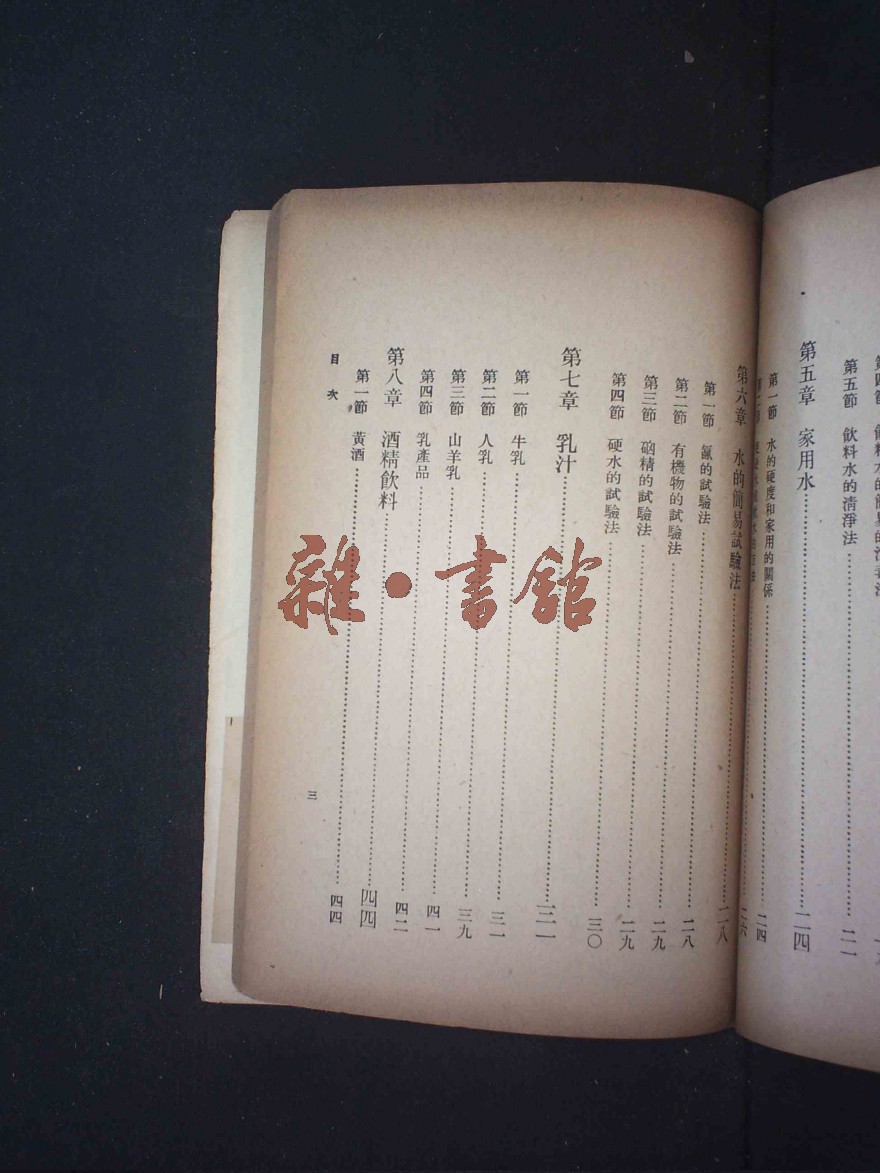 第五節　飲料水的清淨法……二一
第五章　家用水……二四
第一節　水的硬度和家用的關係……二四
二六
第六章　水的簡易試驗法……二八
第一節　氯的試驗法……二八
第二節　有機物的試驗法……二九
第三節　硇精的試驗法……二九
第四節　硬水的試驗法……三〇
第七章　乳汁……三一
第一節　牛乳……三一
第二節　人乳……三九
第三節　山羊乳……四一
第四節　乳產品……四二
第八章　酒精飲料……四四
第一節　黃酒……四四
目次
三
雜·書館